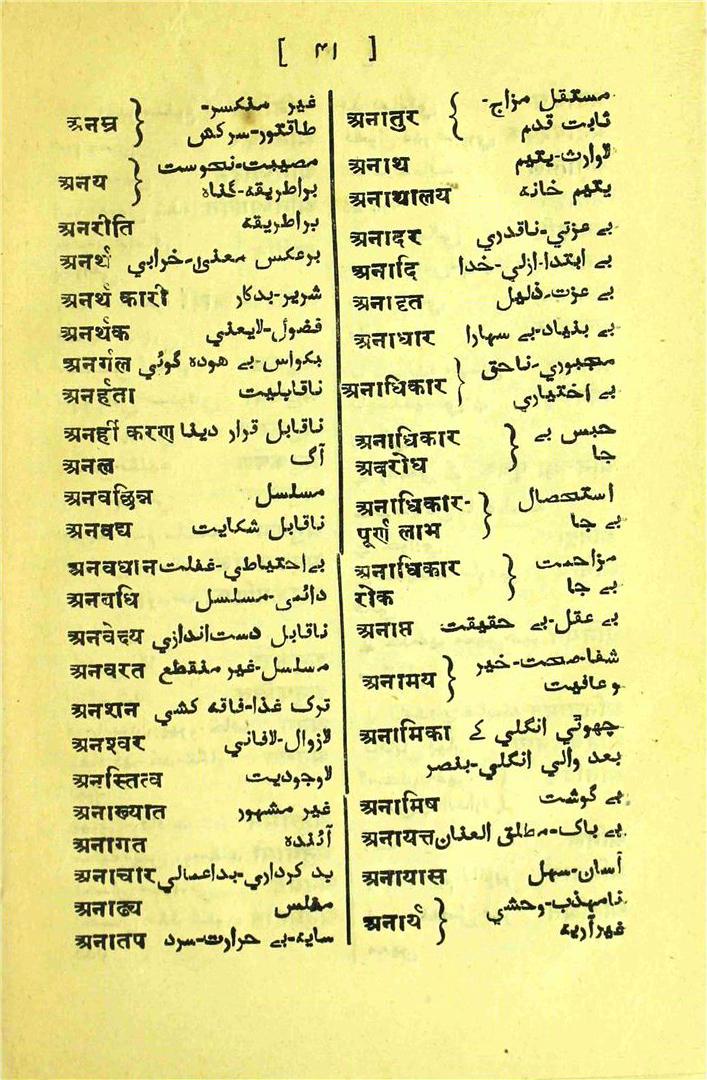 [ ۳۱ ]
अनम्र } غیر منکسر-
طاقتور-سرکش
अनय } مصیبت-نحوست
براطریقہ-گناہ
अनरीति براطریقہ
अनर्थ برعکس معنی-خرابی
अनर्थ कारी شریر-بدکار
अनर्थक فضول-لایعنی
अनर्गल بکواس-بے ھودہ گوئی
अनर्हता ناقابلیت
अनर्ही करण ناقابل قرار دینا
अनल آگ
अनवछिन्न مسلسل
अनवद्य ناقابل شکایت
अनवधान بےاحتیاطی-غفلت
अनवधि دائمی-مسلسل
अनवेद्य ناقابل دست‌اندازی
अनवरत مسلسل-غیر منقطع
अनशन ترک غذا-فاقہ کشی
अनश्वर لازوال-لافانی
अनस्तित्व لاوجودیت
अनाख्यात غیر مشہور
अनागत آئندہ
अनाचार بد کرداری-بداعمالی
अनाढ्य مفلس
अनातप سایہ-بے حرارت-سرد
अनातुर { مستقل مزاج-
ثابت قدم
अनाथ لاوارث-یتیم
अनाथालय یتیم خانہ
अनादर بے عزتی-ناقدری
अनादि بے ابتدا-ازلی-خدا
अनादृत بے عزت-ذلیل
अनाधार بے بنیاد-بے سہارا
अनाधिकार } مجبوری-ناحق
بے اختیاری
अनाधिकार } حبس بے
अवरोध جا
अनाधिकार- } استحصال
पूर्ण लाभ بے جا
अनाधिकार } مزاحمت
रोक بے جا
अनाप्त بے عقل-بے حقیقت
अनामय } شفا-صحت-خیر
و عافیت
अनामिका چھوٹی انگلی کے
بعد والی انگلی-بنصر
अनामिष بے گوشت
अनायत्त بے باک-مطلق العنان
अनायास آسان-سہل
अनार्य } نامہذب-وحشی
غیرآریہ